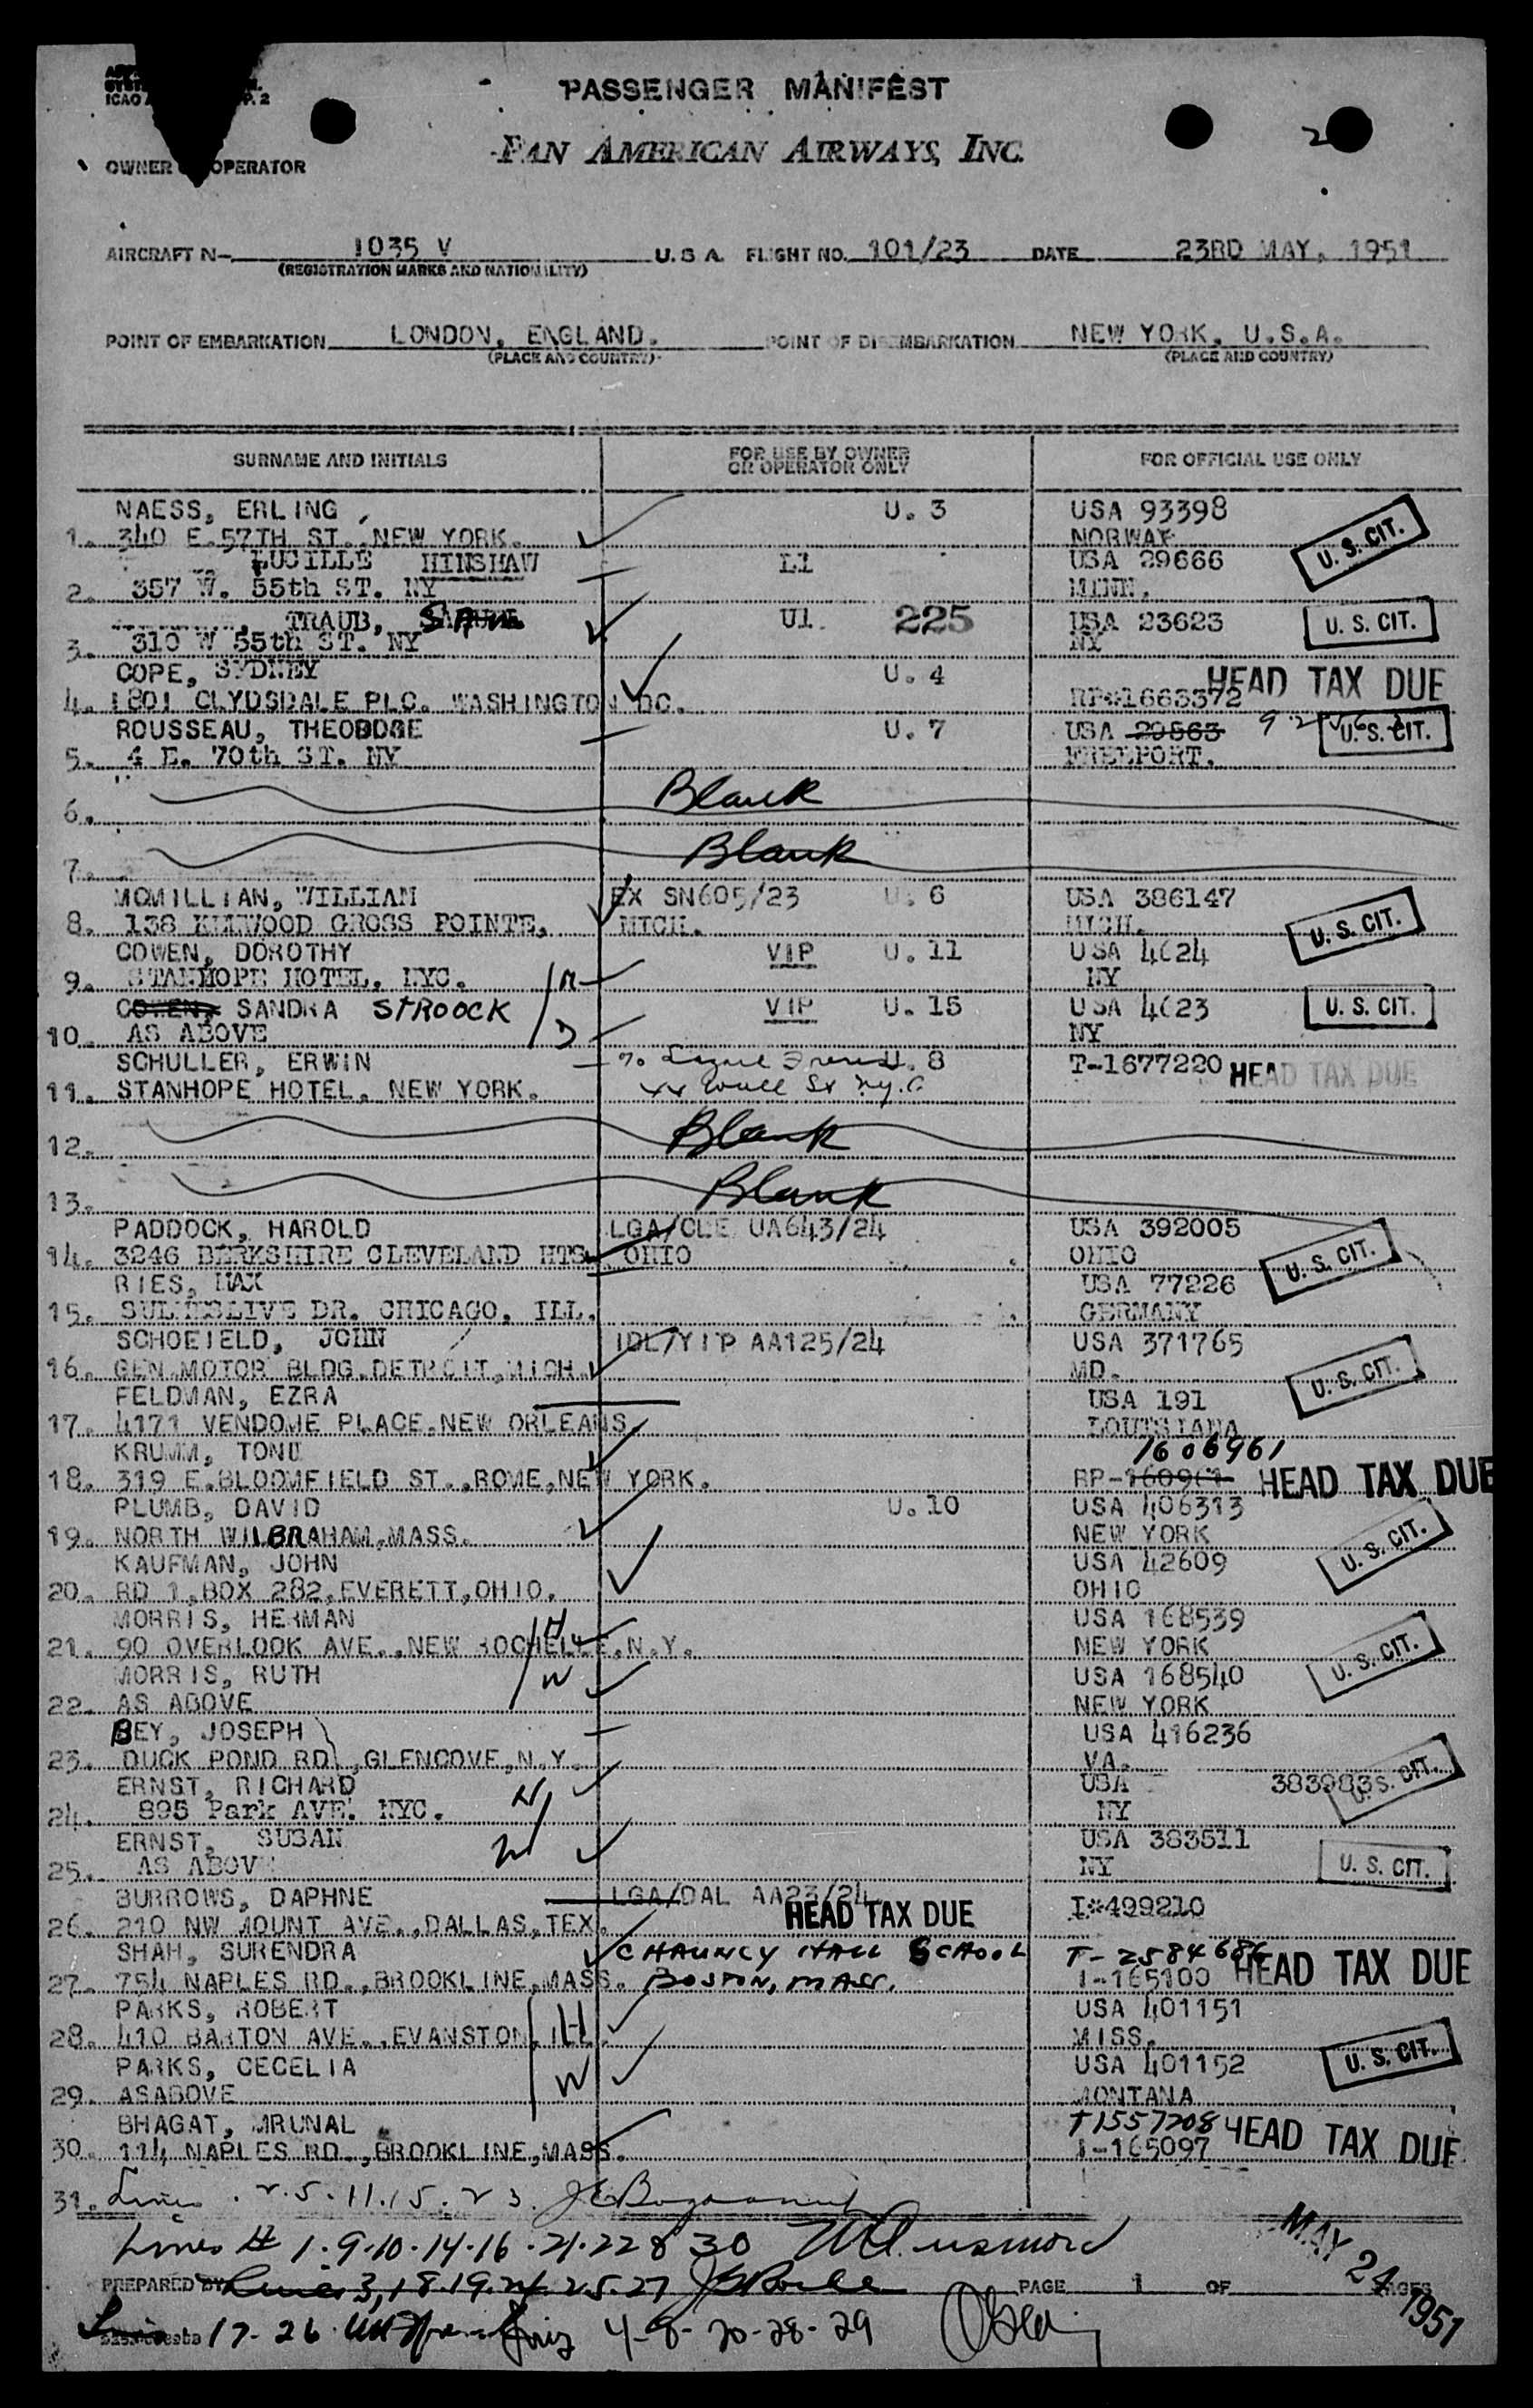 ICAO
P. 2
PASSENGER MANIFEST
PAN AMERICAN AIRWAYS, INC.
2
OWNER OPERATOR
AIRCRAFT N- 1035 V U.S.A. FLIGHT NO. 101/23 DATE 23RD MAY, 1951
(REGISTRATION MARKS AND NATIONALITY)
POINT OF EMBARKATION LONDON, ENGLAND. POINT OF DISEMBARKATION NEW YORK, U.S.A.
(PLACE AND COUNTRY) (PLACE AND COUNTRY)
SURNAME AND INITIALS FOR USE BY OWNER OR OPERATOR ONLY FOR OFFICIAL USE ONLY
NAESS, ERLING U. 3 USA 93398
1. 340 E.57TH ST. NEW YORK. NORWAY U. S. CIT.
LUCILLE HINSHAW L1 USA 29666
2. 357 W. 55th ST. NY MINN.
TRAUB, U1 225 USA 23623 U. S. CIT.
3. 310 W 55th ST. NY NY
COPE, SYDNEY U. 4 HEAD TAX DUE
4. 1801 CLYDSDALE PLC. WASHINGTON DC. RP#1663372
ROUSSEAU, THEODORE U. 7 USA 29863 U. S. CIT.
5. 4 E. 70th ST. NY FREEPORT.
6. Blank
7. Blank
MCMILLIAN, WILLIAM EX SN605/23 U. 6 USA 386147
8. 138 GROSS POINTE, MICH. MICH. U. S. CIT.
COWEN, DOROTHY VIP U. 11 USA 4624
9. STANHOPE HOTEL. NYC. M NY
COWEN, SANDRA STROOCK VIP U. 15 USA 4623 U. S. CIT.
10. AS ABOVE D NY
SCHULLER, ERWIN % U. 8 T-1677220 HEAD TAX DUE
11. STANHOPE HOTEL. NEW YORK. 44 Wall St N.Y.C
12. Blank
13. Blank
PADDOCK, HAROLD LGA/CLE UA643/24 USA 392005
14. 3246 BERKSHIRE CLEVELAND HTS. OHIO OHIO U. S. CIT.
RIES, MAX USA 77226
15. DR. CHICAGO, ILL. GERMANY
SCHOEIELD, JOHN IDL/YIP AA125/24 USA 371765
16. GEN.MOTOR BLDG.DETROIT,MICH. MD. U. S. CIT.
FELDMAN, EZRA USA 191
17. 4171 VENDOME PLACE.NEW ORLEANS. LOUISIANA
KRUMM, 1606961
18. 319 E.BLOOMFIELD ST.,ROME,NEW YORK. RP- HEAD TAX DUE
PLUMB, DAVID U. 10 USA 406313
19. NORTH WILBRAHAM,MASS. NEW YORK U. S. CIT.
KAUFMAN, JOHN USA 42609
20. RD 1,BOX 282,EVERETT,OHIO. OHIO
MORRIS, HERMAN H USA 168539
21. 90 OVERLOOK AVE.,NEW ROCHELLE,N.Y. NEW YORK U. S. CIT.
MORRIS, RUTH W USA 168540
22. AS ABOVE NEW YORK
BEY, JOSEPH USA 416236
23. DUCK POND RD.,GLENCOVE,N.Y. VA.
ERNST, RICHARD H USA 383983 U. S. CIT.
24. 895 Park AVE. NYC. NY
ERNST, SUSAN W USA 383511
25. AS ABOV NY U. S. CIT.
BURROWS, DAPHNE LGA/DAL AA23/24 I#499210
26. 210 NW MOUNT AVE.,DALLAS,TEX. HEAD TAX DUE
SHAH, SURENDRA CHAUNCY HALL SCHOOL T-2584686
27. 754 NAPLES RD.,BROOKLINE,MASS. BOSTON, MASS. I-165100 HEAD TAX DUE
PARKS, ROBERT H USA 401151
28. 410 BARTON AVE.,EVANSTON, ILL. MISS.
PARKS, CECELIA W USA 401152 U. S. CIT.
29. ASABOVE MONTANA
BHAGAT, MRUNAL T1557208
30. 114 NAPLES RD.,BROOKLINE,MASS. I-165097 HEAD TAX DUE
31. Lines 2.5.11.15.23.
Lines # 1.9.10.14.16.21.22 & 30
PREPARED BY Lines 3,18.19.24.25.27 PAGE 1 OF PAGES
Lines 17-26 Lines 4-8-20-28-29
MAY 24 1951